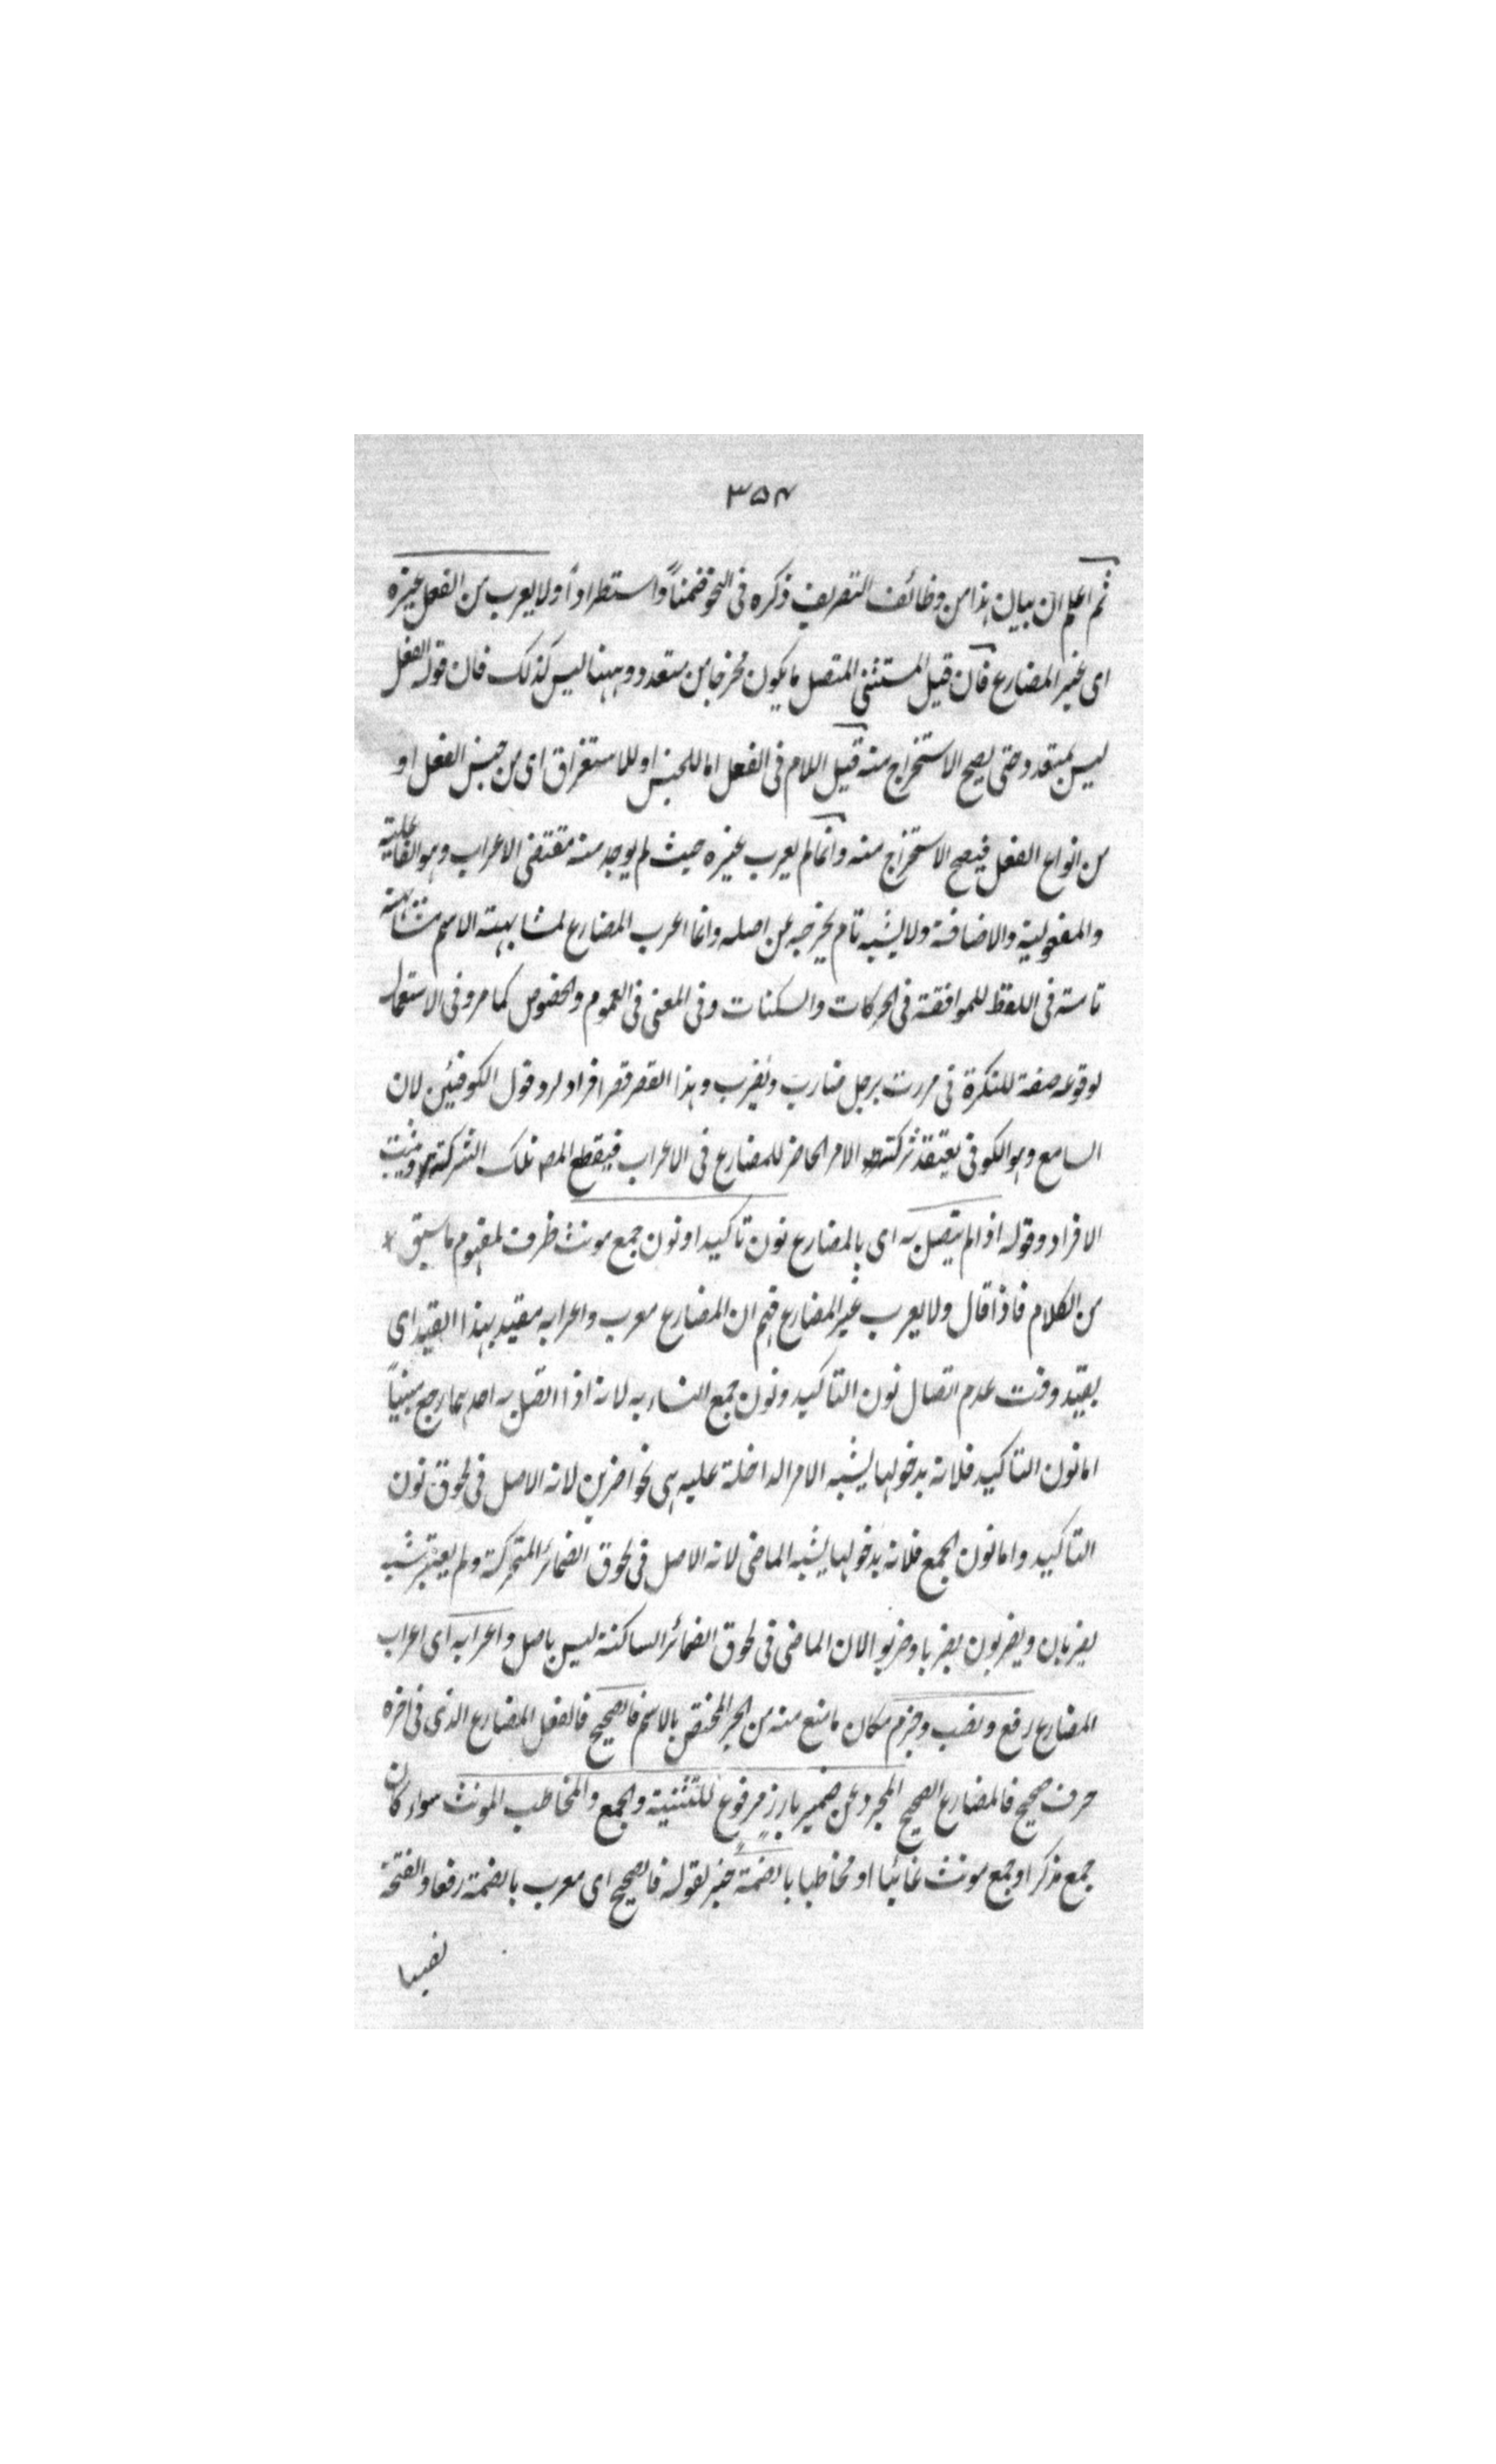 ٣٥٤
ثم اعلم ان بيان هذا من وظائف التصريف ذكره فى النحو ضمناً واستطراداً ولا يعرب من الفعل غيره
اى غير المضارع فان قيل المستثنى المتصل ما يكون مخرجا من متعدد وههنا ليس كذلك فان قوله الفعل
ليس بمتعدد حتى يصح الاستخراج منه قيل اللام فى الفعل اما للجنس او للاستغراق اى من جنس الفعل او
من انواع الفعل فيصح الاستخراج منه وانما لم يعرب غيره حيث لم يوجد منه مقتضى الاعراب وهو الفاعلية
والمفعولية والاضافة ولا يشبه تام يخرجه عن اصله وانما اعرب المضارع لمشابهته الاسم مشابهة
تامة فى اللفظ للموافقة فى الحركات والسكنات وفى المعنى فى العموم والخصوص كما مر وفى الاستعمال
لوقوعه صفة للنكرة فى مررت برجل ضارب ويضرب وهذا القصر قصر افراد لرد قول الكوفيين لان
السامع وهو الكوفى يعتقد شركة الامر الحاضر للمضارع فى الاعراب فيقطع المصـ تلك الشركة ويثبت
الافراد وقوله اذا لم يتصل به اى بالمضارع نون تاكيد او نون جمع مونث ظرف لمفهوم ما سبق
من الكلام فاذا قال ولا يعرب غير المضارع فهم ان المضارع معرب واعرابه مقيد بهذا القيد اى
بقيد وقت عدم اتصال نون التاكيد ونون جمع النساء به لانه اذا اتصل به احدهما رجع مبنياً
اما نون التاكيد فلانه بدخولها يشبه الامر الداخلة عليه هى نحو اضربن لانه الاصل فى لحوق نون
التاكيد واما نون الجمع فلانه بدخولها يشبه الماضى لانه الاصل فى لحوق الضمائر المتحركة ولم يعتبر شبه
يضربان ويضربون بضربا وضربوا لان الماضى فى لحوق الضمائر الساكنة ليس باصل واعرابه اى اعراب
المضارع رفع ونصب وجزم مكان ما منع منه من الجر المختص بالاسم فالصحيح فالفعل المضارع الذى فى اخره
حرف صحيح فالمضارع الصحيح المجرد عن ضمير بارز مرفوع للتثنية والجمع والمخاطب المونث سواء كان
جمع مذكر او جمع مونث غائبا او مخاطبا بالضمة خبر لقوله فالصحيح اى معرب بالضمة رفعا والفتحة
نصبا